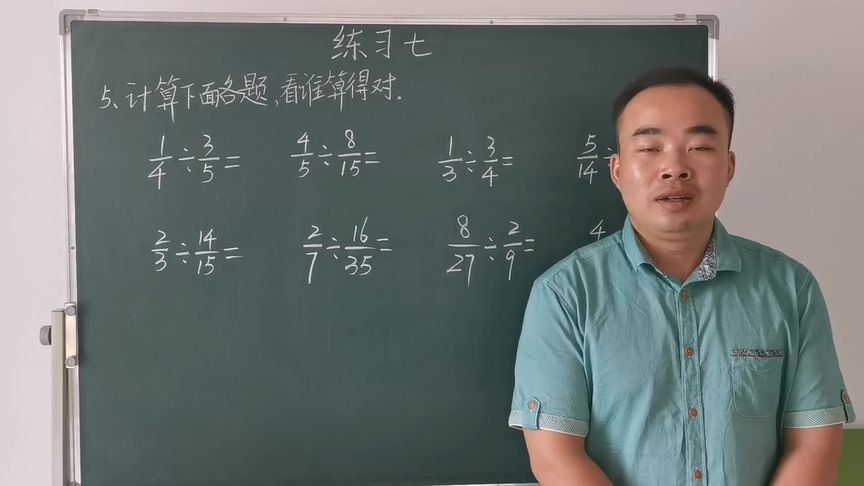 练习七
5、计算下面各题,看谁算得对.
1/4÷3/5= 4/5÷8/15= 1/3÷3/4= 5/14÷
2/3÷14/15= 2/7÷16/35= 8/27÷2/9= 4